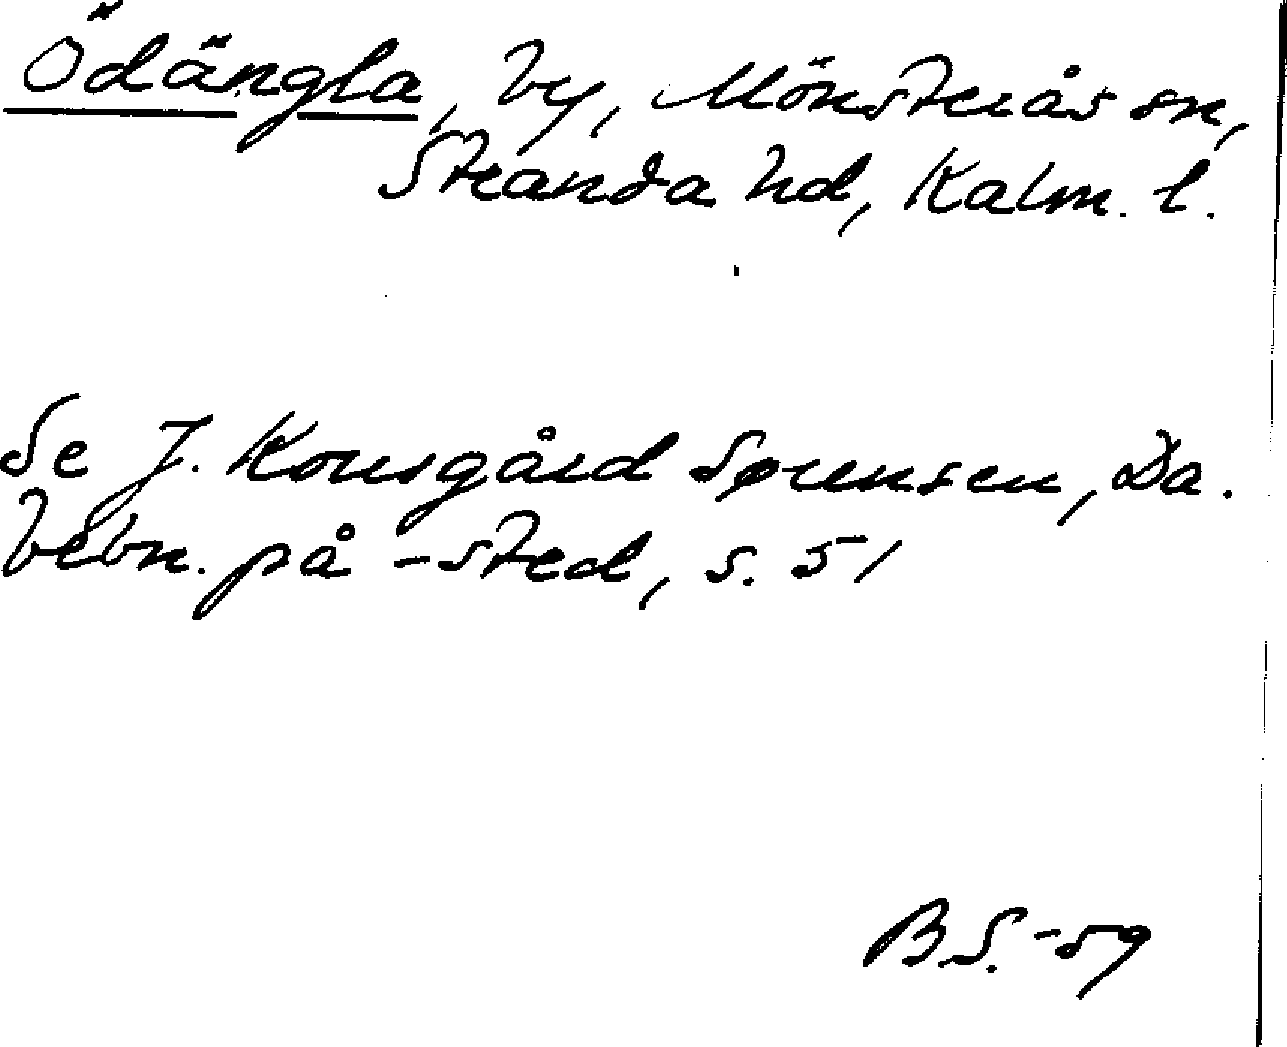 Ödängla, by, Mönsterås sn,
Stranda hd, Kalm. l.
Se J. Kousgård Sørensen, Da.
bebn. på -sted, s. 51
B.S. -59